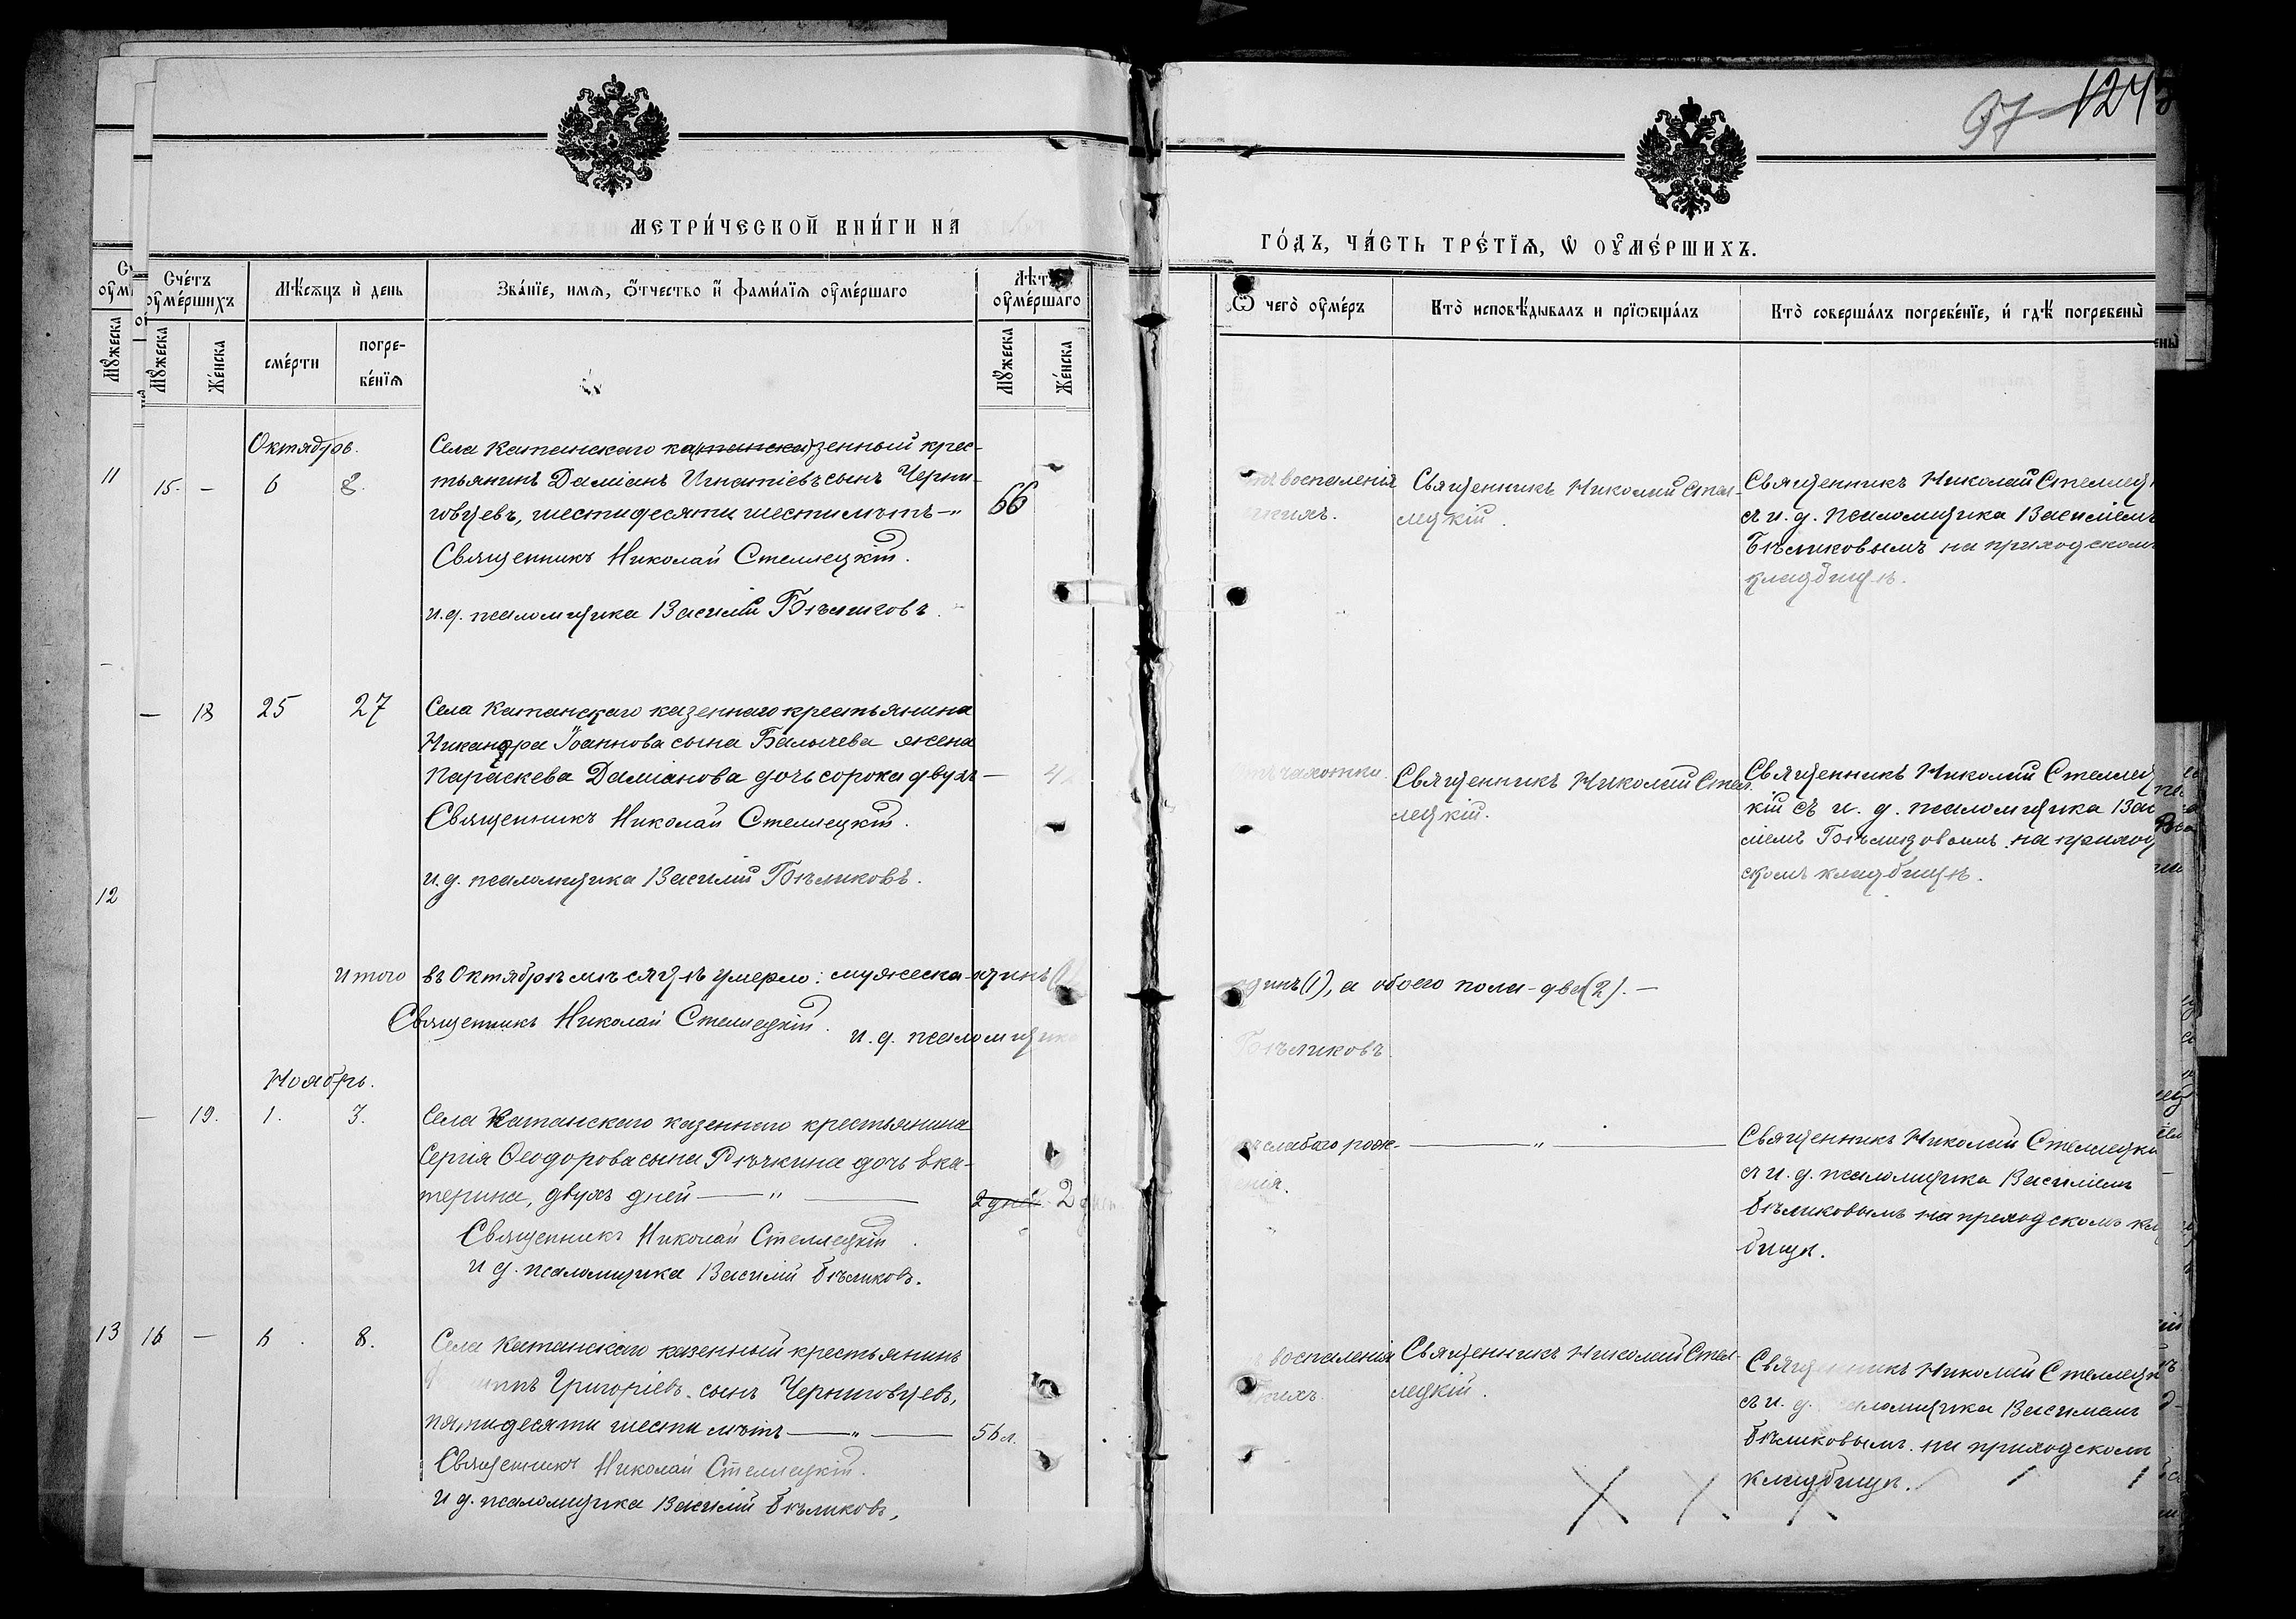 97 124
МЕТРИ́ЧЕСКОЙ КНИ́ГИ НА́
ГО́ДЪ, ЧА́СТЬ ТРЕ́ТІѦ, Ѡ ОУ҆МЕ́РШИХЪ.
Сче́тъ оу҆ме́ршихъ
Мѣ́сѧцъ и҆ день
Зва́нїе, имѧ, ѿтчество и҆ фами́лїѧ оу҆ме́ршаго
Лѣт
оу҆ме́ршаго
Ѿ чегѡ̀ оу҆ме́ръ
Кто̀ исповѣ́дывалъ и прїѡбща́лъ
Кто̀ соверша́лъ погребе́нїе, и҆ гдѣ̀ погребены̀
Мꙋ́жеска
Же́нска
сме́рти
погре-
бе́нїѧ
Мꙋ́жеска
Же́нска
Октябрь.
11
15. — 6 8.
Села Катанскаго казенный крес-
тьянинъ Даміанъ Игнатіевъ сынъ Черни-
говцевъ, шестидесяти шести лѣтъ — „
66
Священникъ Николай Стеллецкій.
и. д. псаломщика Василій Бѣликовъ.
воспаленія
Священникъ Николай Стел-
лецкій.
Священникъ Николай Стеллец
съ и. д. псаломщика Василіемъ
Бѣликовымъ на приходскомъ
кладбищѣ.
— 18 25 27
Села Катанскаго казеннаго крестьянина
Никандра Іоаннова сына Балычева жена
Параскева Даміанова дочь сорока двухъ —
Священникъ Николай Стеллецкій.
и. д. псаломщика Василій Бѣликовъ.
чахотки.
Священникъ Николай Стел
лецкій.
Священникъ Николай Стеллец
кій съ и. д. псаломщика Васи
ліемъ Бѣликовымъ на приход
скомъ кладбищѣ.
12
Итого въ Октябрѣ мѣсяцѣ умерло: мужеска — одинъ (1
одинъ (1), а обоего пола — два (2). —
Священникъ Николай Стеллецкій. и. д. псаломщика
Бѣликовъ.
Ноябрь.
— 19. 1. 3.
Села Катанскаго казеннаго крестьянина
Сергія Ѳеодорова сына Рѣчкина дочь Ека-
терина, двухъ дней — „ —
2 дней 2 дней
Священникъ Николай Стеллецкій.
и д. псаломщика Василій Бѣликовъ.
слабаго рож-
енія.
— „ —
Священникъ Николай Стеллецкі
съ и. д. псаломщика Василіемъ
Бѣликовымъ на приходскомъ кл
бищѣ.
13
16 — 6. 8.
Села Катанскаго казенный крестьянинъ
Григоріевъ сынъ Черниговцевъ,
пятидесяти шести лѣтъ — „ —
56 л.
Священникъ Николай Стеллецкій.
и д. псаломщика Василій Бѣликовъ,
воспаленія
Священникъ Николай Стел-
лецкій.
Священникъ Николай Стеллец
съ и. д. псаломщика Василіемъ
Бѣликовымъ. на приходскомъ
кладбищѣ.